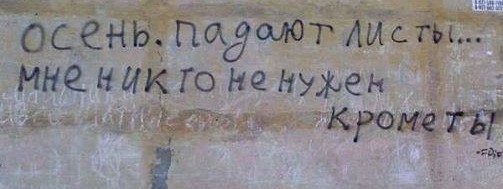 осень. падают листы...
мне никто не нужен
крометы